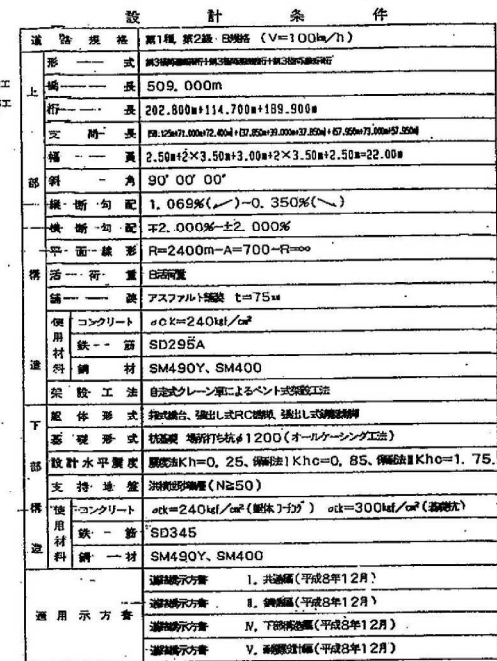 設 計 条 件
道 路 規 格 第1種、第2級・B規格 (V=100km/h)
形 式
橋 長 509.000m
桁 長 202.800m+114.700m+189.900m
支 間 長 (58.125m+71.000m+72.400m)+(37.850m+39.000m+37.850m)+(57.950m+73.000m+57.950m)
幅 員 2.50m+2×3.50m+3.00m+2×3.50m+2.50m=22.00m
斜 角 90°00′00″
縦 断 勾 配 1.069%(↗)~0.350%(↘)
横 断 勾 配 ∓2.000%~±2.000%
平 面 線 形 R=2400m~A=700~R=∞
活 荷 重 B活荷重
舗 装 アスファルト舗装 t=75mm
上 部 構 造
使用材料 コンクリート σck=240kgf/cm²
鉄 筋 SD295A
鋼 材 SM490Y、SM400
架 設 工 法 自走式クレーン車によるベント式架設工法
下 部 構 造
躯 体 形 式 箱式橋台、張出し式RC橋脚、張出し式鋼製橋脚
基 礎 形 式 杭基礎 場所打ち杭φ1200(オールケーシング工法)
設計水平震度 震度法Kh=0.25、保耐法ⅠKhc=0.85、保耐法ⅡKhc=1.75
支 持 地 盤 (N≧50)
使用材料 コンクリート σck=240kgf/cm²(躯体 フーチング) σck=300kgf/cm²(基礎杭)
鉄 筋 SD345
鋼 材 SM490Y、SM400
適 用 示 方 書
道路橋示方書 Ⅰ.共通編(平成8年12月)
道路橋示方書 Ⅱ.鋼橋編(平成8年12月)
道路橋示方書 Ⅳ.下部構造編(平成8年12月)
道路橋示方書 Ⅴ.耐震設計編(平成8年12月)